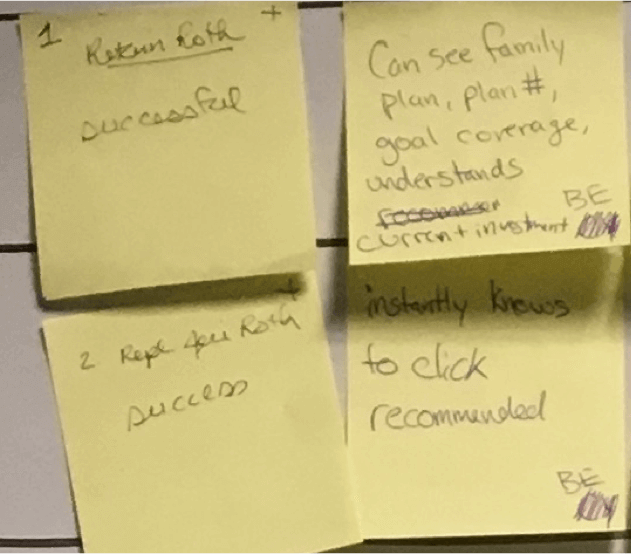 1 +
Return Roth
successful
Can see family
plan, plan #,
goal coverage,
understands
BE
current investment
2 Roth +
success
instantly knows
to click
recommended
BE